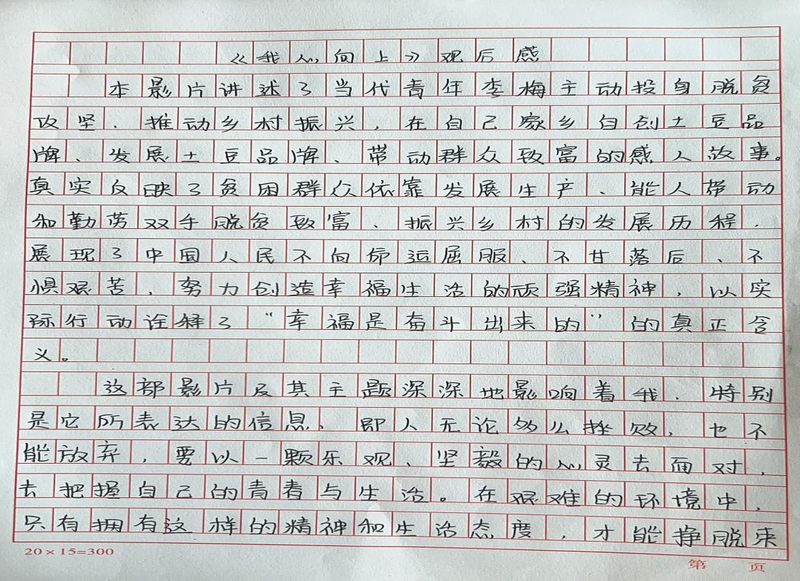 《我心向上》观后感
本影片讲述了当代青年李梅主动投身脱贫
攻坚、推动乡村振兴，在自己家乡自创土豆品
牌、发展土豆品牌、带动群众致富的感人故事。
真实反映了贫困群众依靠发展生产、能人带动
和勤劳双手脱贫致富、振兴乡村的发展历程，
展现了中国人民不向命运屈服、不甘落后、不
惧艰苦，努力创造幸福生活的顽强精神，以实
际行动诠释了“幸福是奋斗出来的”的真正含
义。
这部影片及其主题深深地影响着我，特别
是它所表达的信息，即人无论多么挫败，也不
能放弃，要以一颗乐观、坚毅的心灵去面对，
去把握自己的青春与生活。在艰难的环境中，
只有拥有这样的精神和生活态度，才能挣脱束
20×15=300
第 页